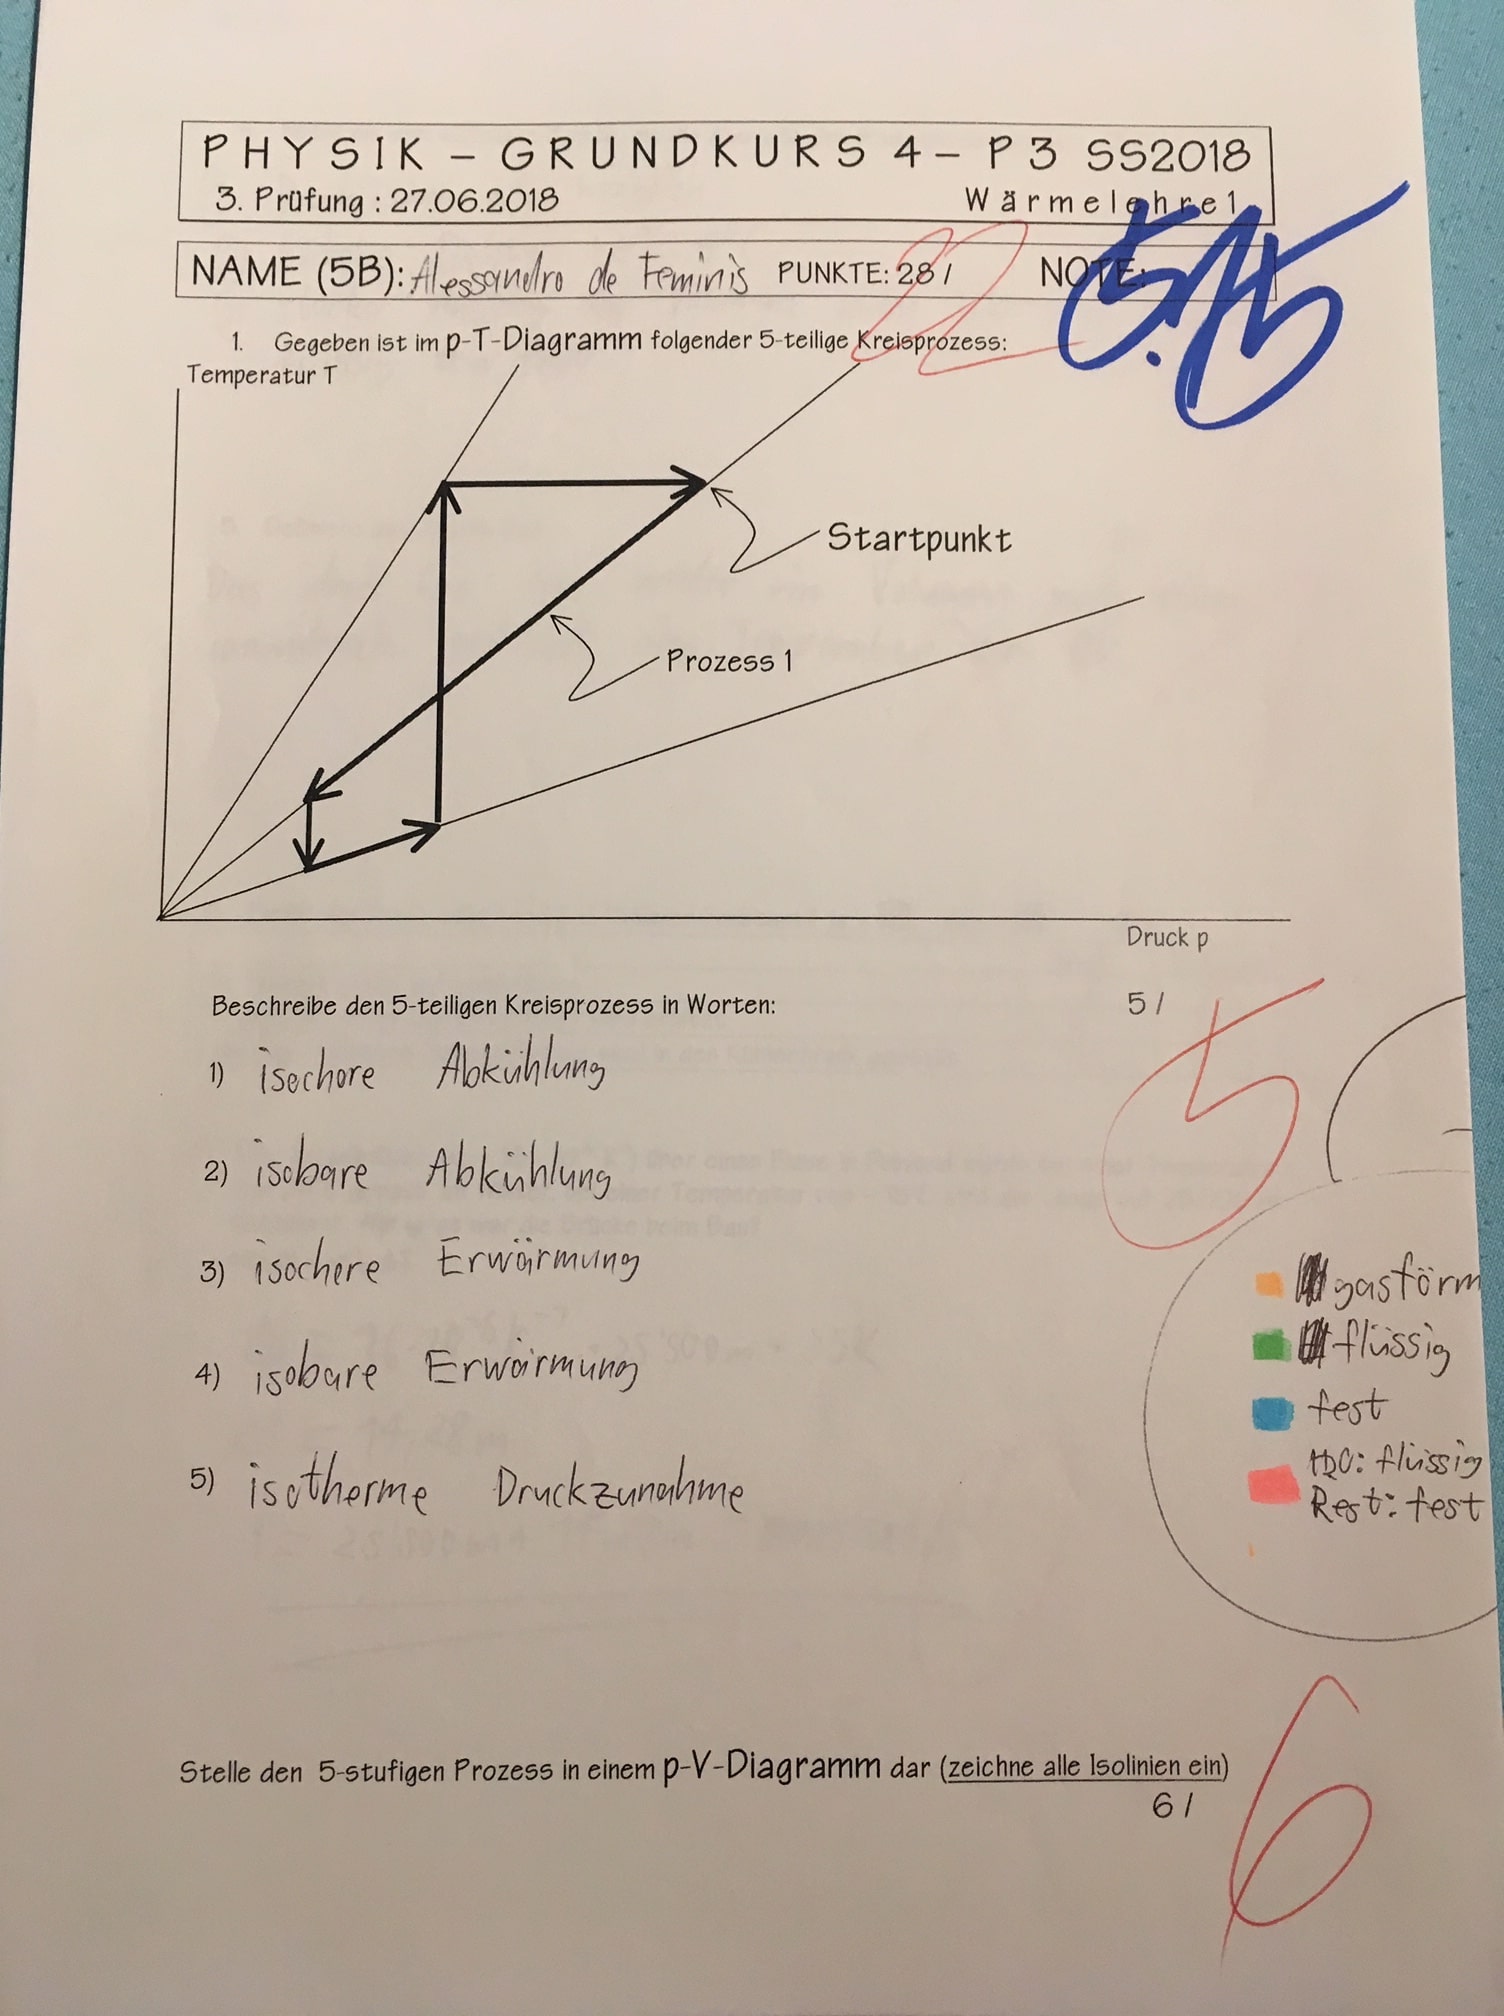 PHYSIK – GRUNDKURS 4 – P3 SS2018
3. Prüfung : 27.06.2018 Wärmelehre 1
NAME (5B): Alessandro de Feminis PUNKTE: 28 / 22 NOTE: 5.15
1. Gegeben ist im p-T-Diagramm folgender 5-teilige Kreisprozess:
Temperatur T
Startpunkt
Prozess 1
Druck p
Beschreibe den 5-teiligen Kreisprozess in Worten: 5 / 5
1) isochore Abkühlung
2) isobare Abkühlung
3) isochere Erwärmung
4) isobare Erwärmung
5) isotherme Druckzunahme
gasförm
flüssig
fest
H2O: flüssig
Rest: fest
Stelle den 5-stufigen Prozess in einem p-V-Diagramm dar (zeichne alle Isolinien ein)
6 / 6